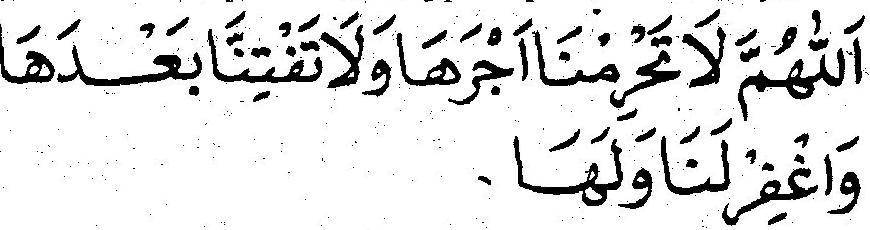 اَللّٰهُمَّ لَا تَحْرِمْنَا اَجْرَهَا وَلَا تَفْتِنَّا بَعْدَهَا
وَاغْفِرْ لَنَا وَلَهَا .